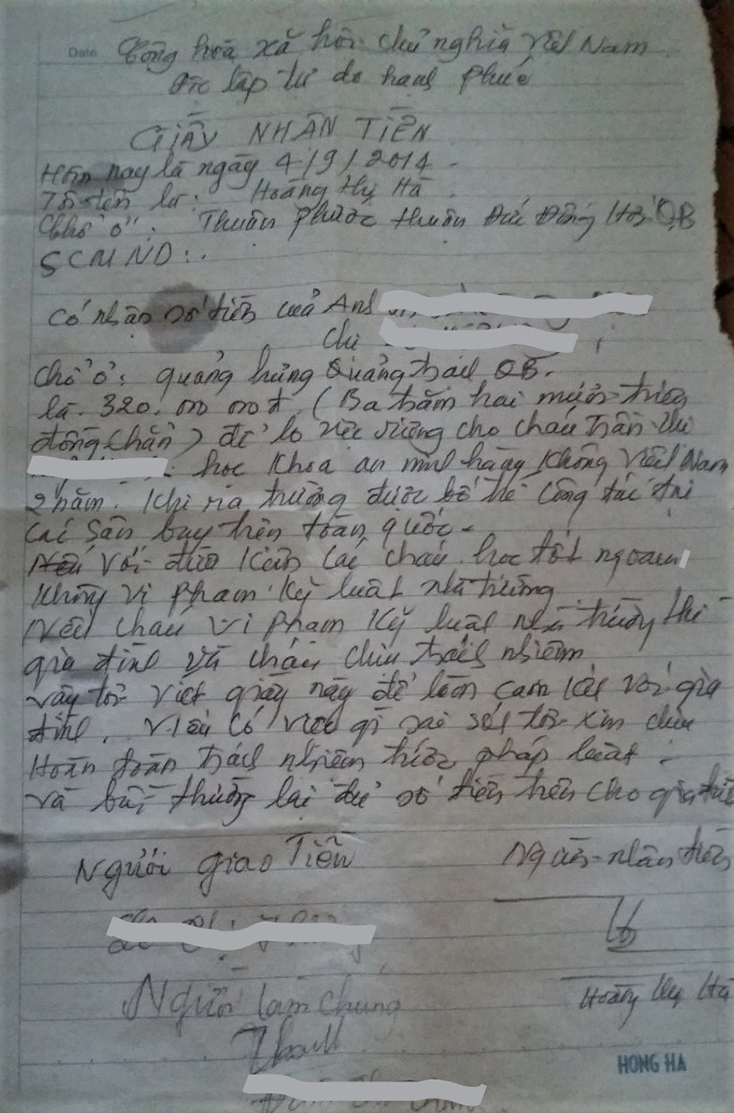 Date Cộng hoà xã hội chủ nghĩa Việt Nam
Độc lập tự do hanh phúc
GIẤY NHÂN TIỀN
Hôm nay là ngày 4/9/2014.
Tôi tên là: Hoàng Hà
Chổ ở: Thuân phước thuân Đức Đồng Hới QB
SCMND:.
Có nhân số tiền cuả Anh
Chi
Chổ ở: quảng hưng Quảng trach QB.
là. 320.000.000đ. (Ba trăm hai mươi triệu
đồng chẵn) để lo việc cho cháu trần thi
học khoa an ninh hàng không Việt Nam
2 năm. Khi ra trường được bố trí công tác tại
các sân bay trên toàn quốc.
với điều kiên các cháu học tốt ngoan
không vi pham kỷ luât nhà trường
Nếu cháu vi pham kỷ luât nhà trường thì
gia đình và cháu chiu trách nhiêm
vây tôi viết giấy này để làm cam kết với gia
đình. Nếu có viêc gì sai sót tôi xin chiu
Hoàn toàn trách nhiêm trước pháp luât.
và bồi thường lai đủ số tiền trên cho gia đình
Người giao Tiền Người nhân tiền
Người làm chứng Hoàng Hà
HONG HA